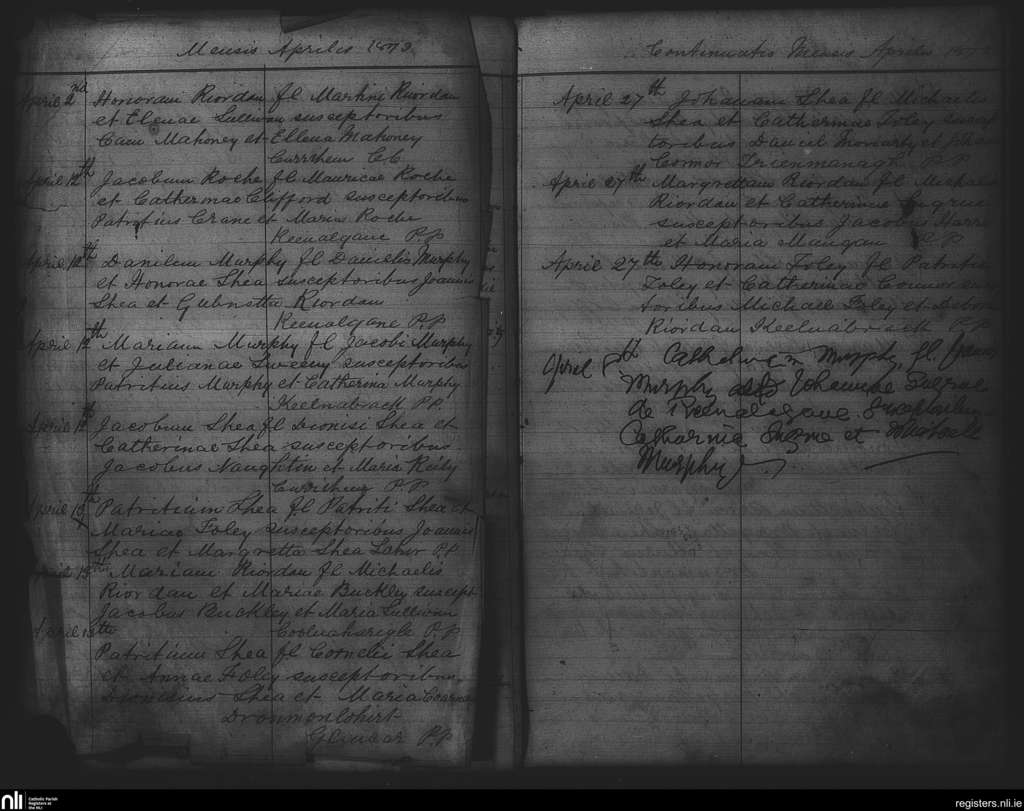 Mensis Aprilis 1873
April 2nd Honoram Riordan fl Martini Riordan
et Elenae Sullivan susceptoribus
Mahoney et Ellena Mahoney
CC
April 12th Jacobum Roche fl Mauricae Roche
et Catherinae Clifford susceptoribus
Patritius Crane et Maria Roche
Keenalgane P.P
April 12th Danilem Murphy fl Danielis Murphy
et Honorae Shea susceptoribus Joannis
Shea et Gubnetta Riordan
Keenalgane P.P
April 12th Mariam Murphy fl Jacobi Murphy
et Julianae Sweeny susceptoribus
Patritius Murphy et Catherina Murphy
Keelnabrack P.P.
April th Jacobum Shea fl Dionisi Shea et
Catherinae Shea susceptoribus
Jacobus Naughtin et Maria Reily
P.P
April th Patritium Shea fl Patriti Shea et
Mariae Foley susceptoribus Joannis
Shea et Margretta Shea P.P
13th Mariam Riordan fl Michaelis
Riordan et Mariae Buckley suscept
Jacobus Buckley et Maria Sullivan
P.P
April 13th
Patritium Shea fl Cornelii Shea
et Annae Foley susceptoribus
Dionisius Shea et Maria
Glenbar P.P
Continuatio Mensis Aprilis
April 27th Johanam Shea fl Michaelis
Shea et Catherinae Foley suscep
toribus Daniel Moriarty et
Connor P.P
April 27th Margrettam Riordan fl Michael
Riordan et Catherinae Sugrue
susceptoribus Jacobus
et Maria Mangan P.P
April 27th Honoram Foley fl Patriti
Foley et Catherinae Connor suscep
toribus Michael Foley et
Riordan Keelnabrack P.P
April 8th Murphy, fl.
Murphy Sugrue
de Susceptoribus
Catharina Sugrue et
Murphy
nli
Catholic Parish
Registers at
the NLI
registers.nli.ie